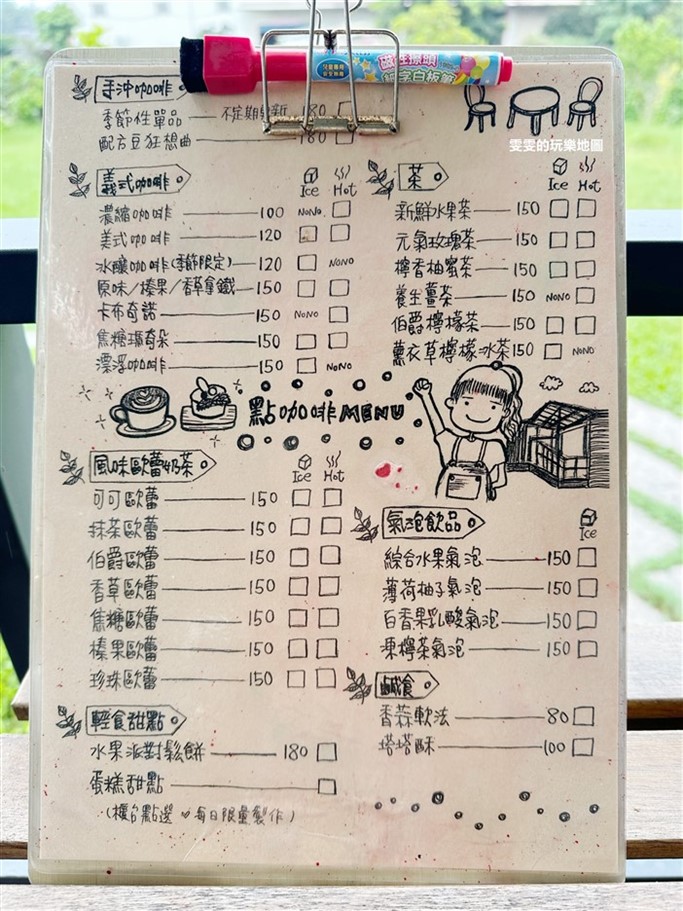 磁性擦頭
細字白板筆
雯雯的玩樂地圖
手沖咖啡
季節性單品 不定期更新 180
配方豆狂想曲 180
義式咖啡 Ice Hot
濃縮咖啡 100 NONO
美式咖啡 120
冰釀咖啡(季節限定) 120 NONO
原味/榛果/香草拿鐵 150
卡布奇諾 150 NONO
焦糖瑪奇朵 150
漂浮咖啡 150 NONO
茶 Ice Hot
新鮮水果茶 150
元氣玫瑰茶 150
檸香柚蜜茶 150
養生薑茶 150 NONO
伯爵檸檬茶 150
薰衣草檸檬冰茶 150 NONO
點咖啡MENU
風味歐蕾奶茶 Ice Hot
可可歐蕾 150
抹茶歐蕾 150
伯爵歐蕾 150
香草歐蕾 150
焦糖歐蕾 150
榛果歐蕾 150
珍珠歐蕾 150
氣泡飲品 Ice
綜合水果氣泡 150
薄荷柚子氣泡 150
百香果乳酸氣泡 150
凍檸茶氣泡 150
鹹食
香蒜軟法 80
塔塔酥 100
輕食甜點
水果派對鬆餅 180
蛋糕甜點
(櫃台點選 ♥ 每日限量製作)